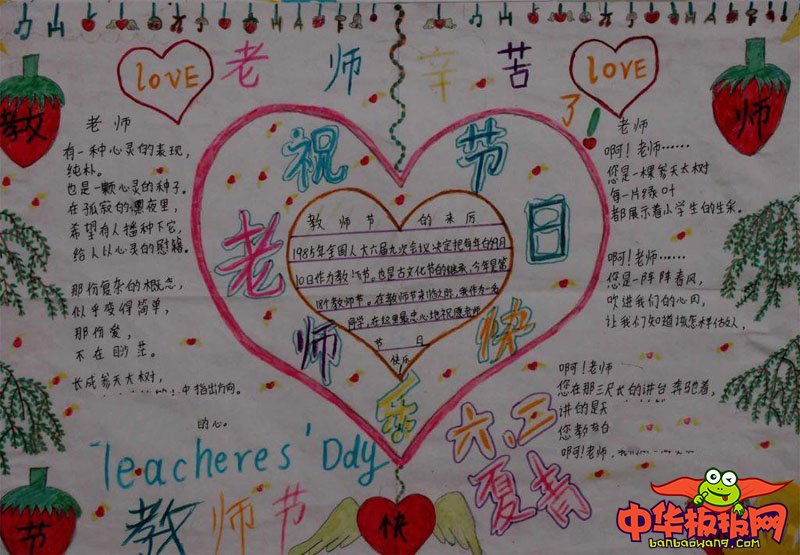 LOVE
老师辛苦了!
LOVE
教
师
老师
有一种心灵的表现,
纯朴。
也是一颗心灵的种子。
在孤寂的漂夜里,
希望有人播种下它,
给人以心灵的慰籍。
那份复杂的概念,
似乎变得简单,
那份爱,
不在
长成参天大树,
中指出方向。
的心。
祝
节
老
日
师
快
乐
教师节的来历
1985年全国人大六届九次会议决定把每年的9月
10日作为教师节。也是古文化节的继承,今年是第
18个教师节。在教师节来临之前,我作为一名
同学,在这里最忠心地祝愿老师
节日
快乐
老师
啊!老师……
您是一棵参天大树
每一片绿叶
都展示着小学生的生采。
啊!老师……
您是一阵阵春风,
吹进我们的心田,
让我们知道该怎样做人,
啊!老师
您在那三尺长的讲台奔驰着,
讲的是天
您教的
啊!老师,
Teacheres' Ddy
六.三
夏青
节
教师节
快
中华板报网
banbaowang.com